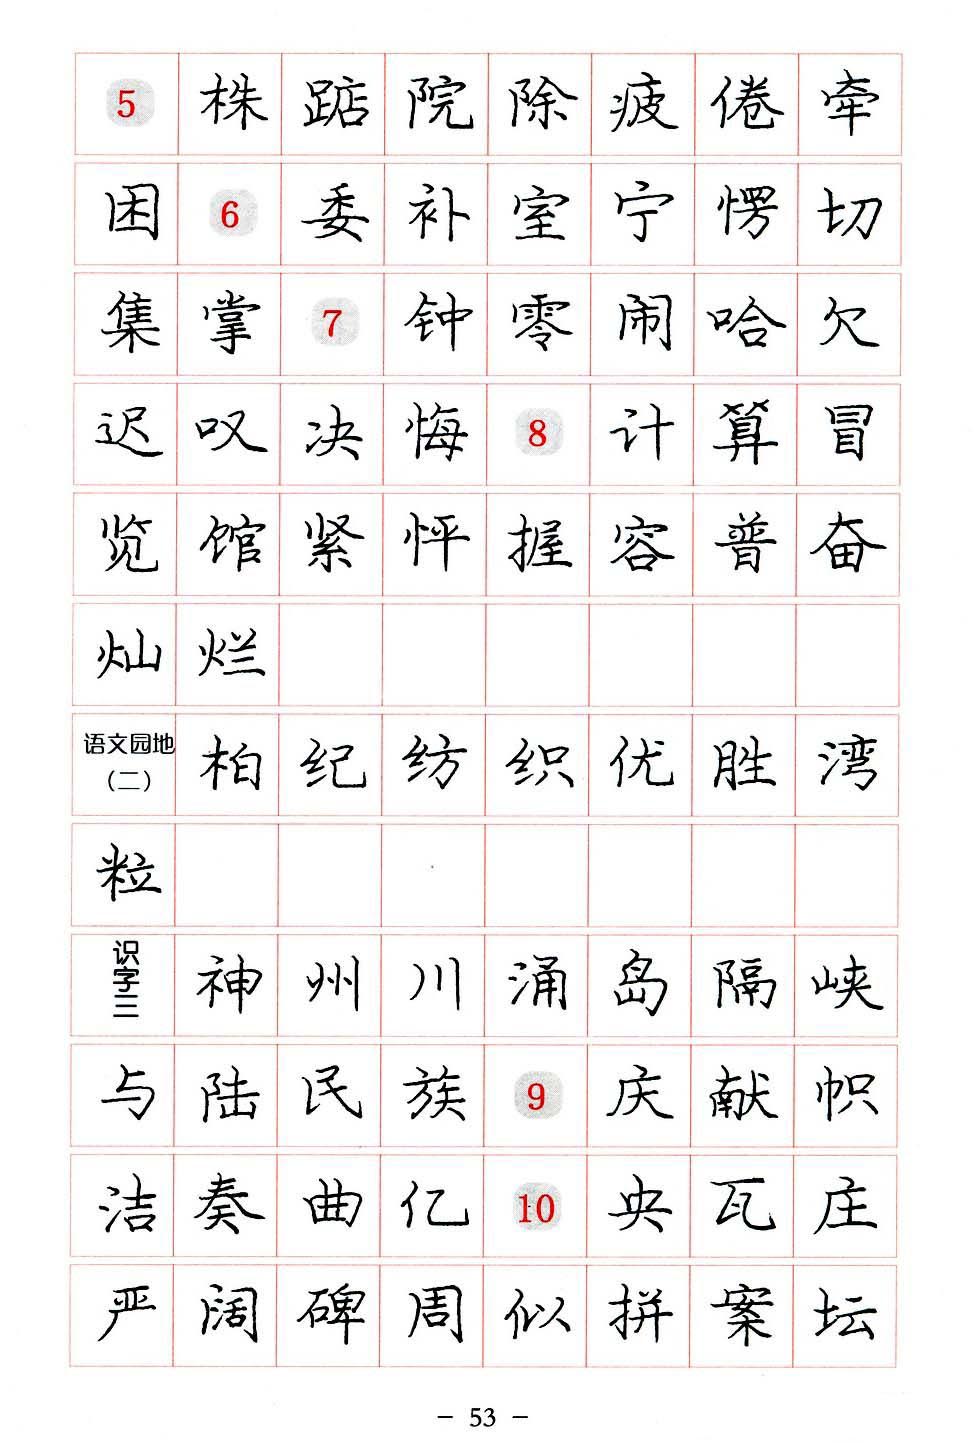 5 株 踮 院 除 疲 倦 牵
困 6 委 补 室 宁 愣 切
集 掌 7 钟 零 闹 哈 欠
迟 叹 决 悔 8 计 算 冒
览 馆 紧 怦 握 容 普 奋
灿 烂
语文园地（二） 柏 纪 纺 织 优 胜 湾
粒
识字三 神 州 川 涌 岛 隔 峡
与 陆 民 族 9 庆 献 帜
洁 奏 曲 亿 10 央 瓦 庄
严 阔 碑 周 似 拼 案 坛
– 53 –